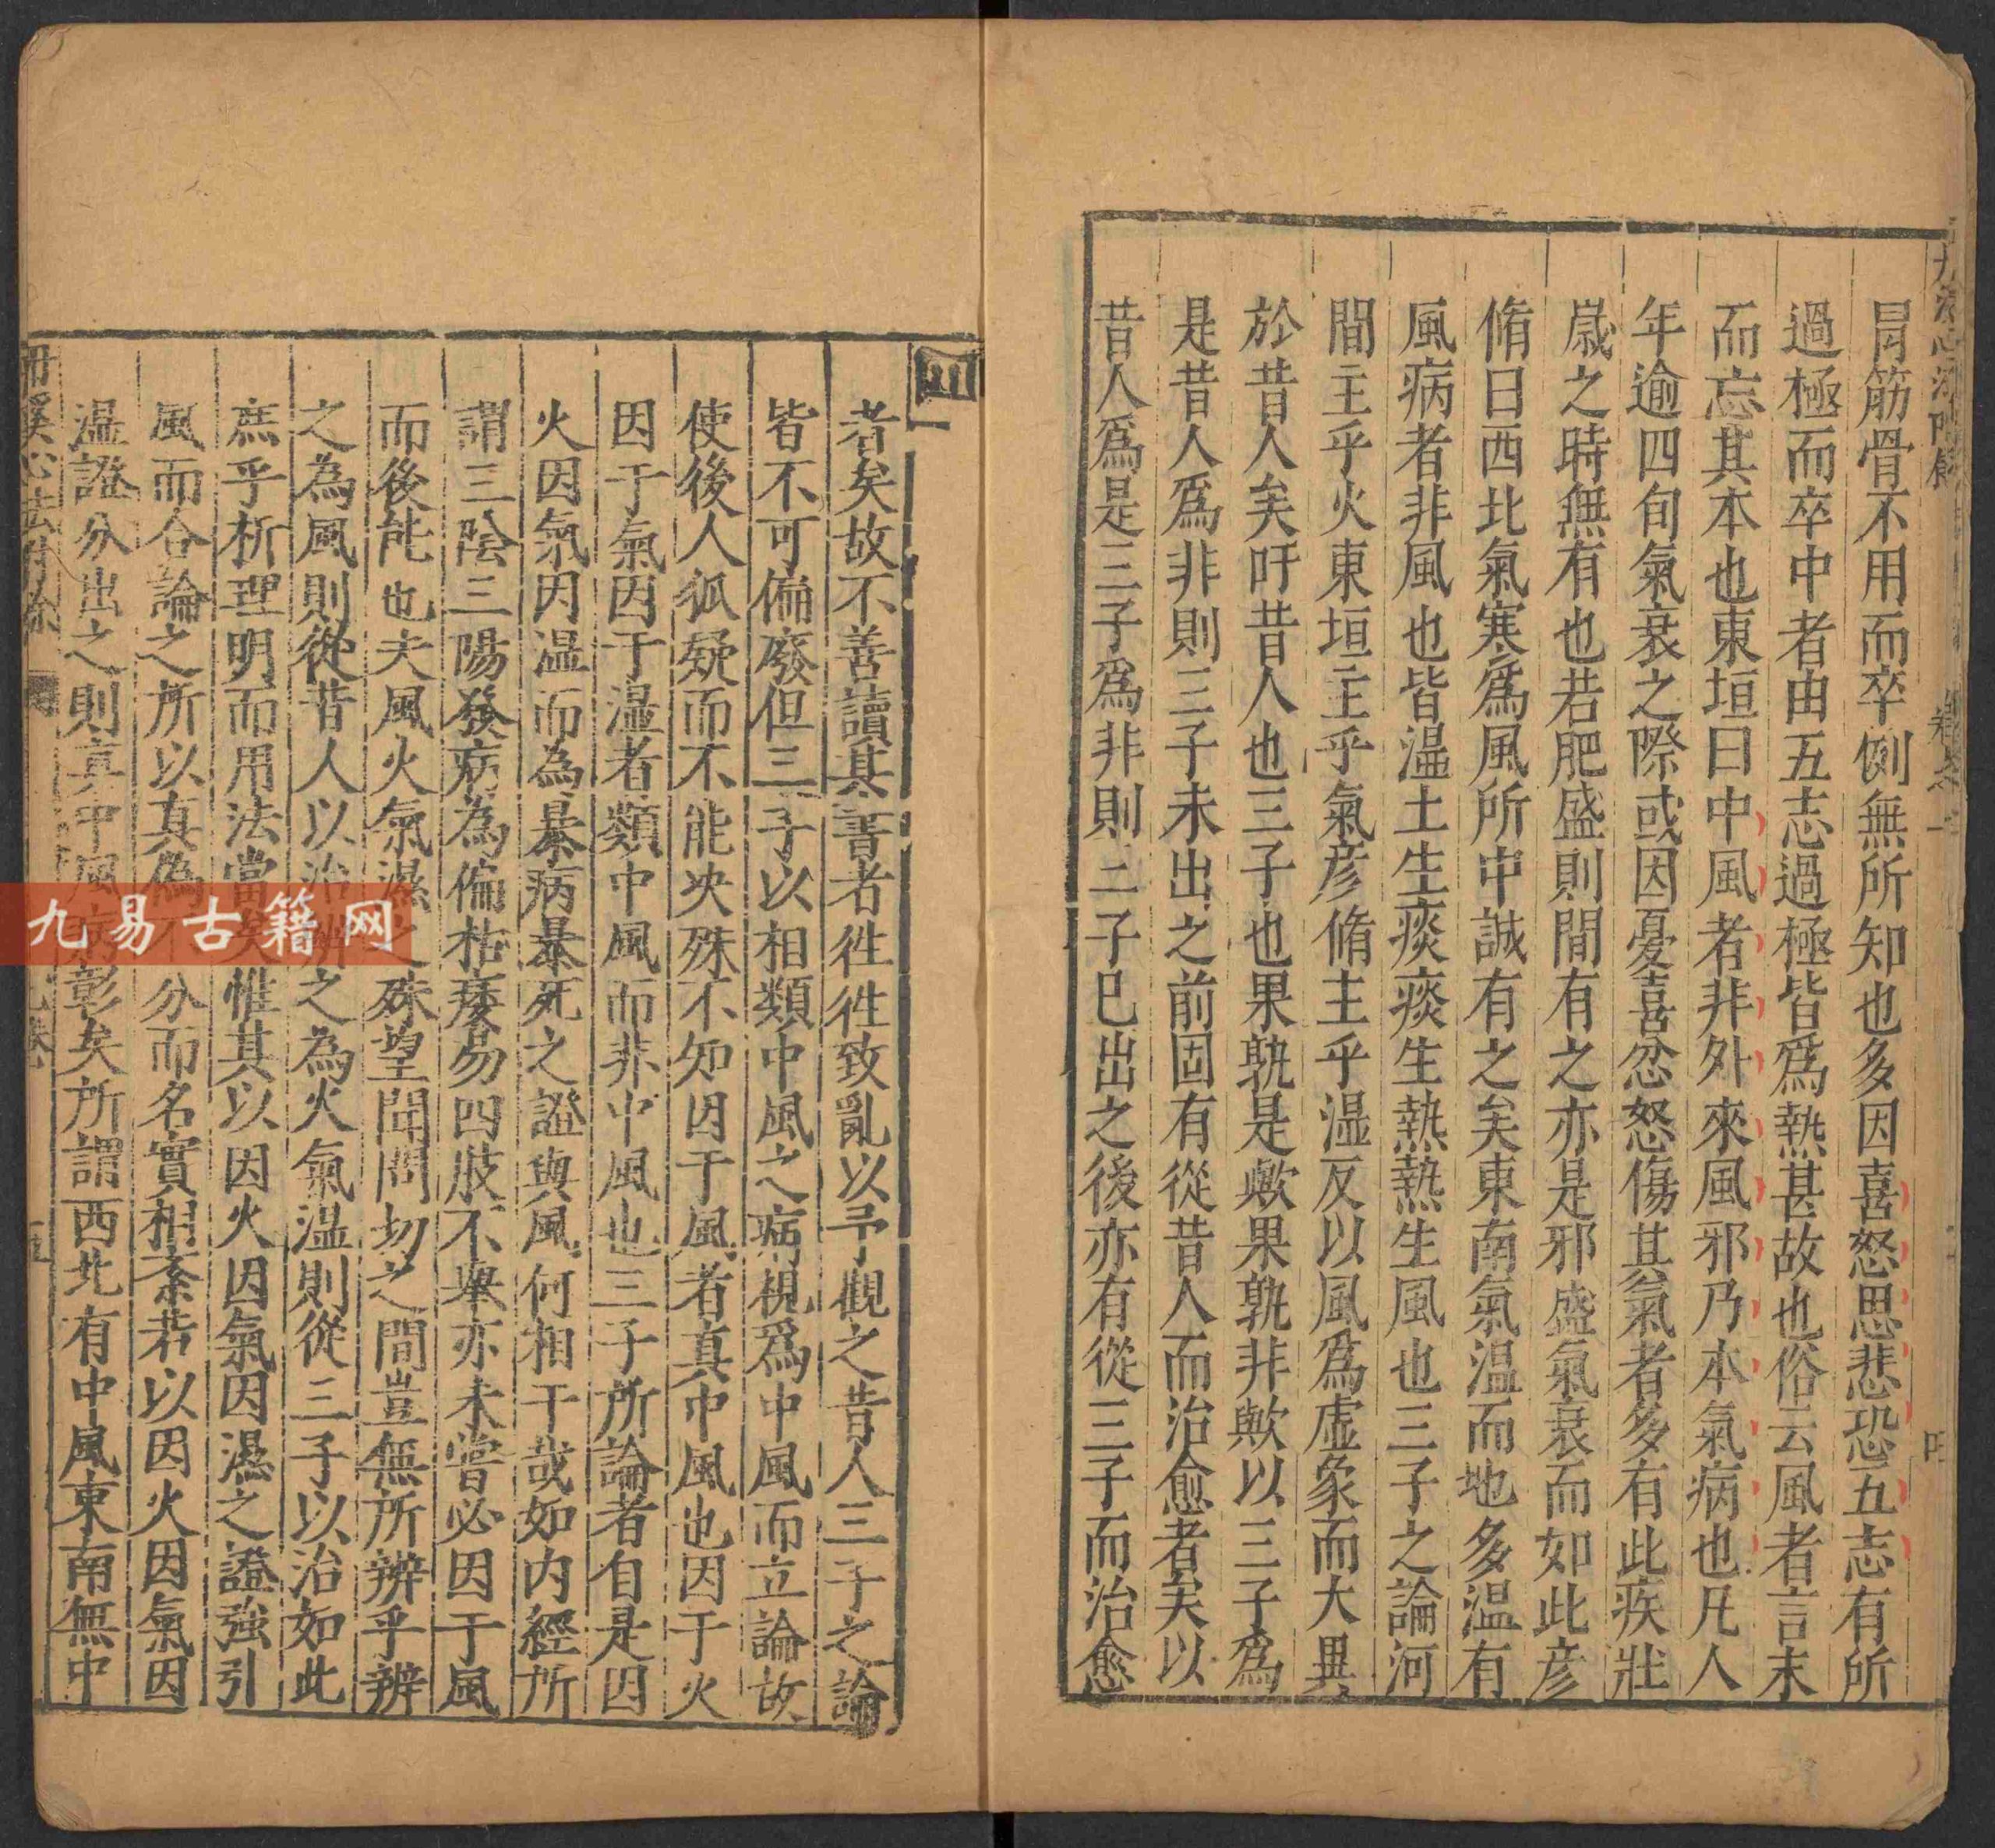 冐筋骨不用而卒倒無所知也多因喜怒思悲恐五志有所
過極而卒中者由五志過極皆爲熱甚故也俗云風者言末
而忘其本也東垣曰中風者非外來風邪乃本氣病也凡人
年逾四旬氣衰之際或因憂喜忿怒傷其氣者多有此疾壯
歲之時無有也若肥盛則間有之亦是邪盛氣衰而如此彦
脩曰西北氣寒爲風所中誠有之矣東南氣温而地多温有
風病者非風也皆温土生痰痰生熱熱生風也三子之論河
間主乎火東垣主乎氣彦脩主乎湿反以風爲虚象而大異
於昔人矣吁昔人也三子也果孰是歟果孰非歟以三子爲
是昔人爲非則三子未出之前固有從昔人而治愈者矣以
昔人爲是三子爲非則三子已出之後亦有從三子而治愈
者矣故不善讀其書者徃徃致亂以予觀之昔人三子之論
皆不可偏廢但三子以相類中風之病視爲中風而立論故
使後人狐疑而不能决殊不知因于風者真中風也因于火
因于氣因于湿者類中風而非中風也三子所論者自是因
火因氣因温而為暴病暴死之證與風何相干哉如内經所
謂三陰三陽發病為偏枯痿易四肢不舉亦未嘗必因于風
而後能也夫風火氣濕之殊望聞問切之間豈無所辨乎辨
之為風則從昔人以治辨之為火氣温則從三子以治如此
庶乎析理明而用法當矣惟其以因火因氣因濕之證強引
風而合論之所以真偽不分而名實相紊若以因火因氣因
温證分出之則真中風病彰矣所謂西北有中風東南無中
丹溪心法附餘
九易古籍网